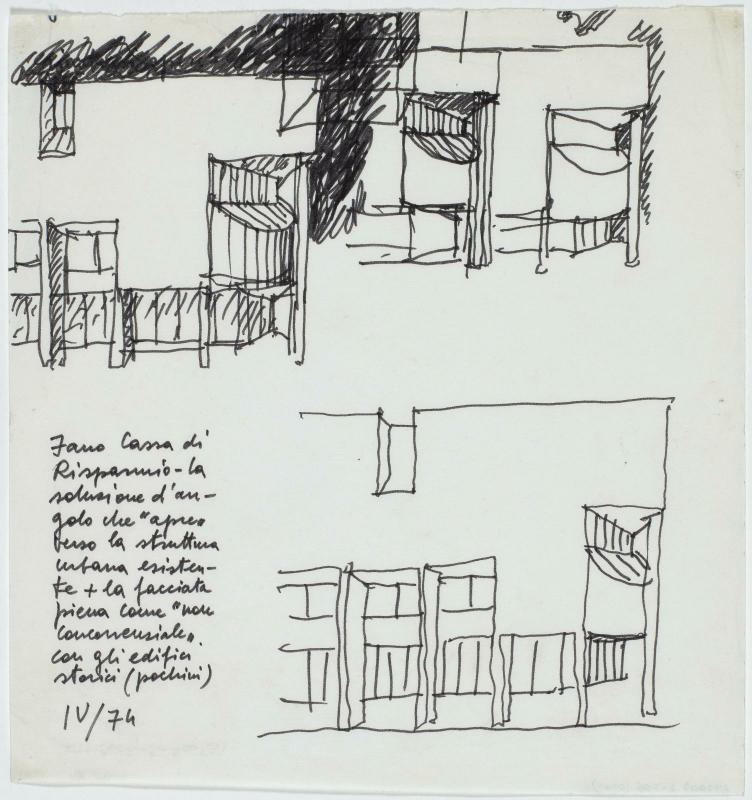 Fano Cassa di
Risparmio - la
soluzione d'an-
golo che "apre"
verso la struttura
urbana esisten-
te + la facciata
piena come "non
concorrenziale"
con gli edifici
storici (pochini)
IV/74